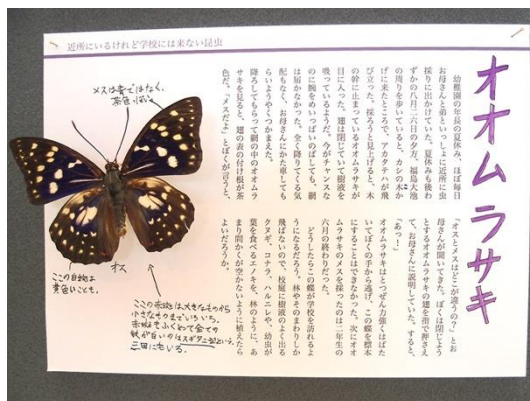 近所にいるけれど学校には来ない昆虫
オオムラサキ
幼稚園の年長の夏休み、ほぼ毎日
お母さんと弟といっしょに近所に虫
採りに出かけていた。夏休みも後わ
ずかの八月二六日の夕方、福島大池
の周りを歩いていると、カシの木か
げに来たところで、アカタテハが飛
び立った。採ろうと見上げると、木
の幹に止まっているオオムラサキが
目に入った。翅は閉じていて樹液を
吸っているようだ。今がチャンスな
のに腕をめいっぱいのばしても、網
は届かなかった。全く降りてくる気
配もなく、お母さんにかた車しても
らいようやくつかまえた。
降ろしてもらって網の中のオオムラ
サキを見ると、翅の表の付け根が茶
色だ。「メスだよ」とぼくが言うと、
「オスとメスはどこが違うの？」とお
母さんが聞いてきた。ぼくは閉じよう
とするオオムラサキの翅を指で押さえ
て、お母さんに説明していた。すると、
「あっ！」
オオムラサキはとつぜん力強くはばた
いてぼくの手から逃げ、この蝶を標本
にすることはできなかった。次にオオ
ムラサキのメスを採ったのは二年生の
六月の終わりだった。
どうしたらこの蝶が学校を訪れるよ
うになるだろう。林やそのまわりしか
飛ばないので、校庭に樹液のよく出る
クヌギ、コナラ、ハルニレや、幼虫が
葉を食べるエノキを、林のように、あ
まり間かくが空かないように植えたら
よいだろうか。
メスは青ではなく、
茶色っぽい
オス
ここの白紋は
黄色いことも。
ここの赤紋は大きなものから
小さなものまでいろいろ。
赤紋もふくめて全ての
紋が白いのはスギタニ型という。
三田にもいる。